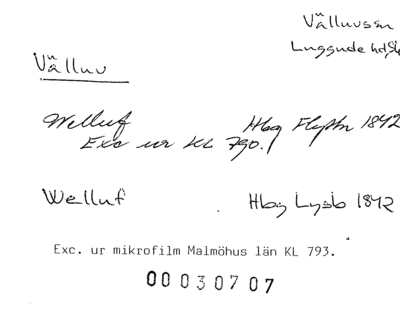 Välluvsn
Luggude hd, Sk
Välluv
Welluf Hbg Flyttn 1842
Exc ur KL 790.
Welluf Hbg Lysb 1842
Exc. ur mikrofilm Malmöhus län KL 793.
00030707